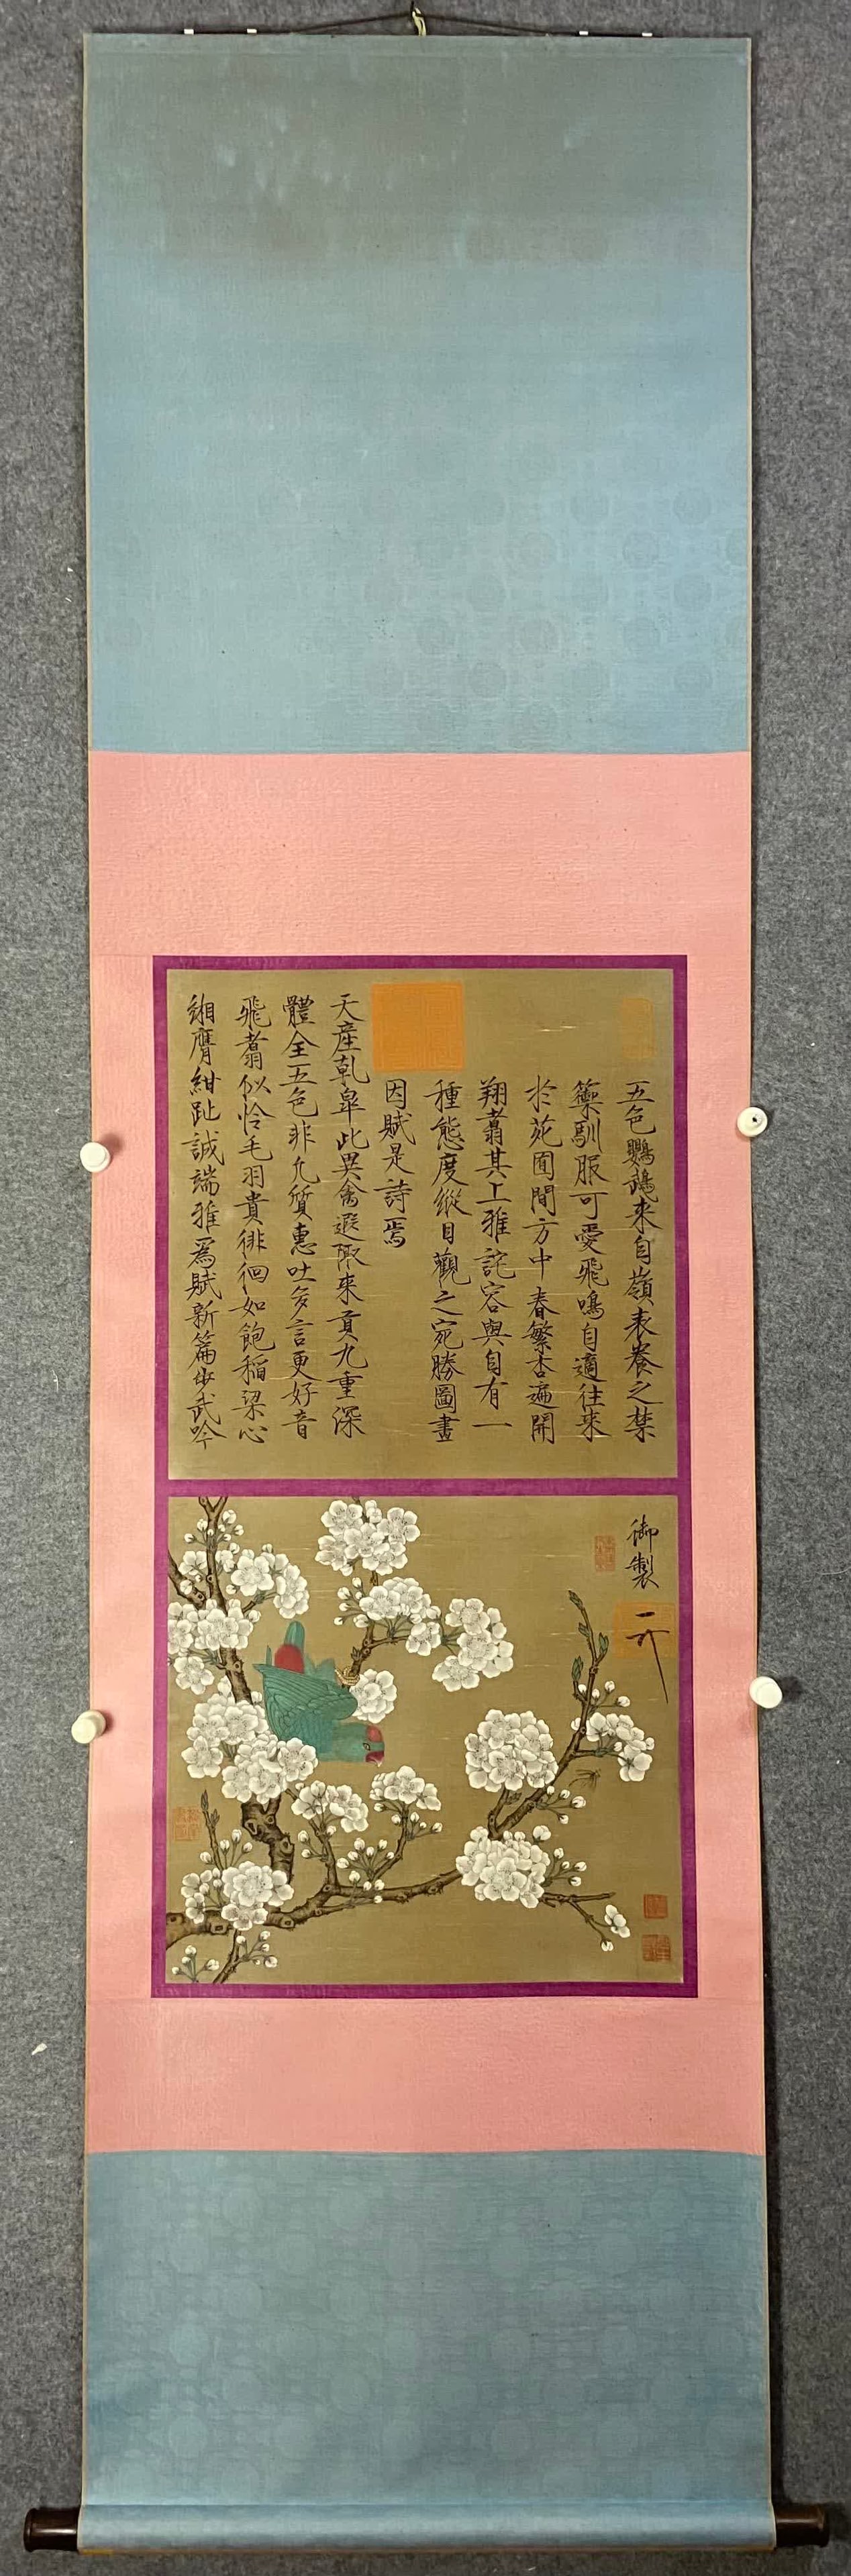 五色鸚鵡來自嶺表養之禁
籞馴服可愛飛鳴自適往來
於苑囿間方中春繁杏遍開
翔翥其上雅詫容與自有一
種態度縱目觀之宛勝圖畫
因賦是詩焉
天產乾皋此異禽遐陬來貢九重深
體全五色非凡質惠吐多言更好音
飛翥似怜毛羽貴徘徊如飽稻粱心
緗膺紺趾誠端雅為賦新篇步武吟
御製